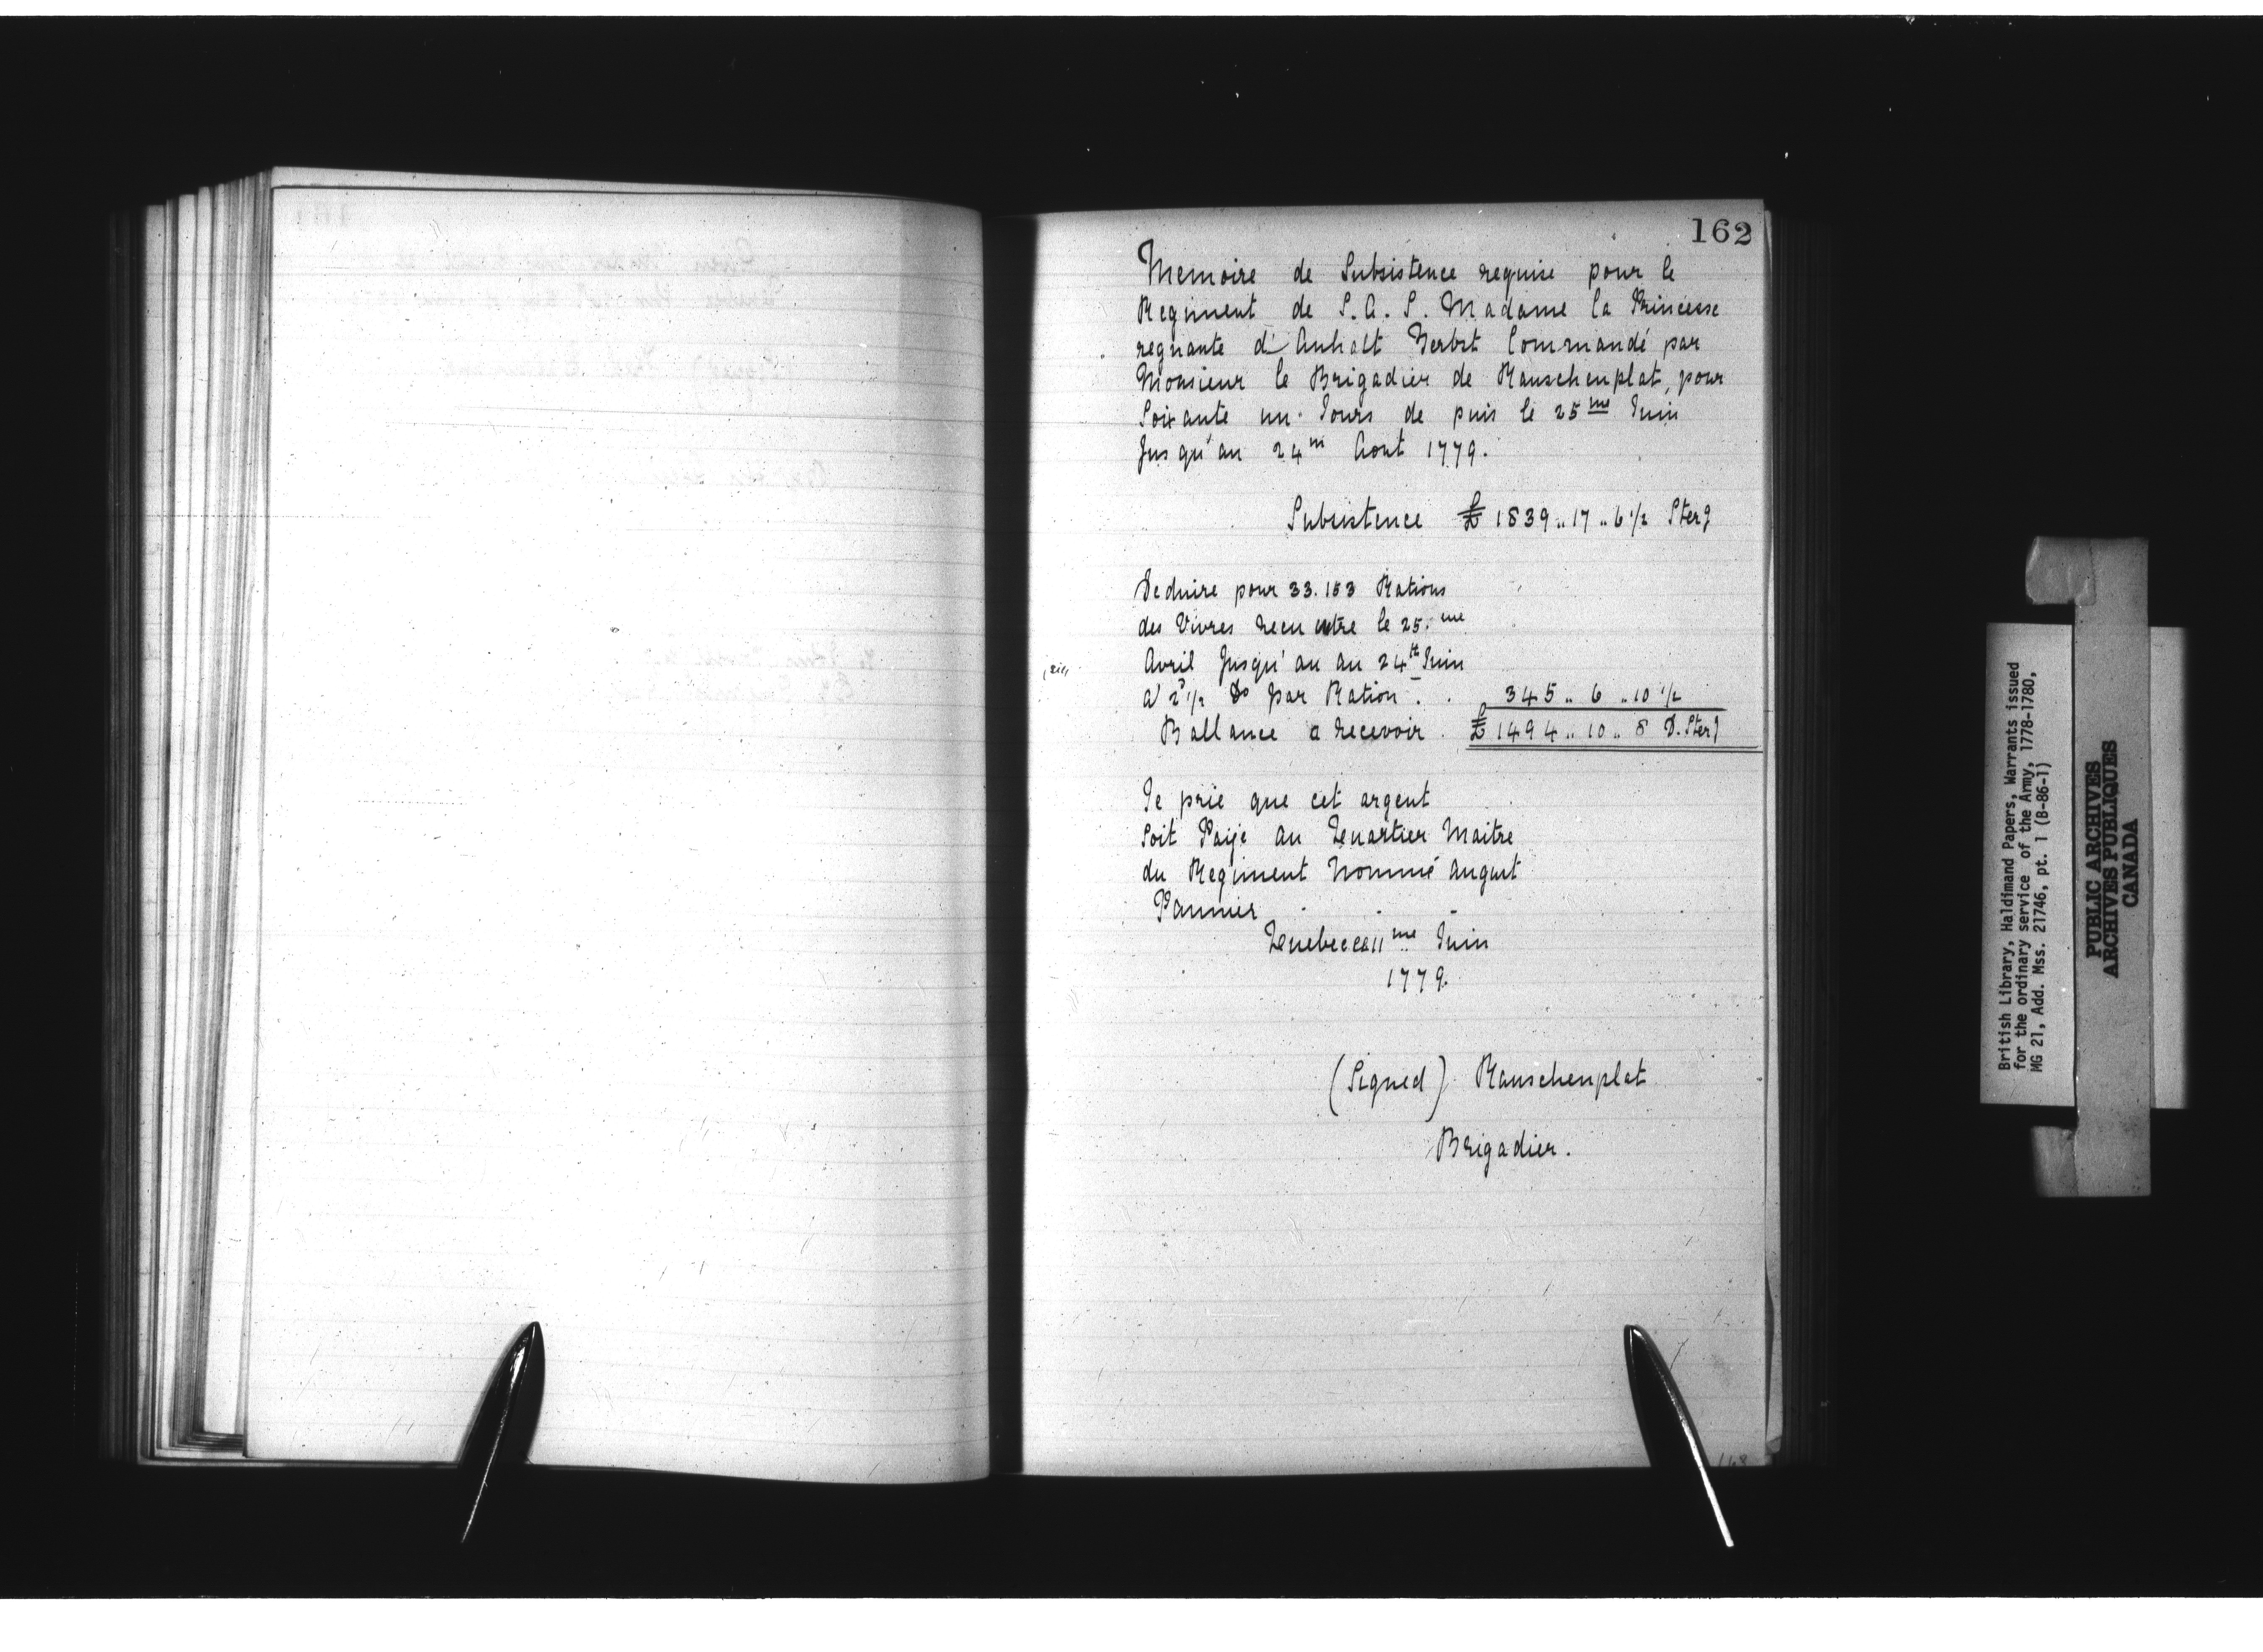 162
Memoire de Subsistence requise pour le
Regiment de S. A. S. Madame la Princesse
regnante d'Anhalt Zerbst Commandé par
Monsieur le Brigadier de Rauschenplat, pour
Soixante un Jours de puis le 25me Juin
Jusqu'au 24m Aout 1779.
Subsistence £ 1839 .. 17 .. 6 1/2 Sterg
Deduire pour 33.153 Rations
des Vivres recu entre le 25.me
Avril Jusqu'au au 24tt Juin
(sic)
a' 2 1/2 Ds par Ration . . 345 .. 6 .. 10 1/2
Ballance a recevoir . £ 1494 .. 10 .. 8 D. Sterg
Je prie que cet argent
soit Paije au Quartier Maitre
du Regiment Nommé August
Pannier
Quebec ce 11me Juin
1779.
(Signed) Rauschenplat
Brigadier.
British Library, Haldimand Papers, Warrants issued
for the ordinary service of the Army, 1778-1780,
MG 21, Add. Mss. 21746, pt. 1 (B-86-1)
PUBLIC ARCHIVES
ARCHIVES PUBLIQUES
CANADA